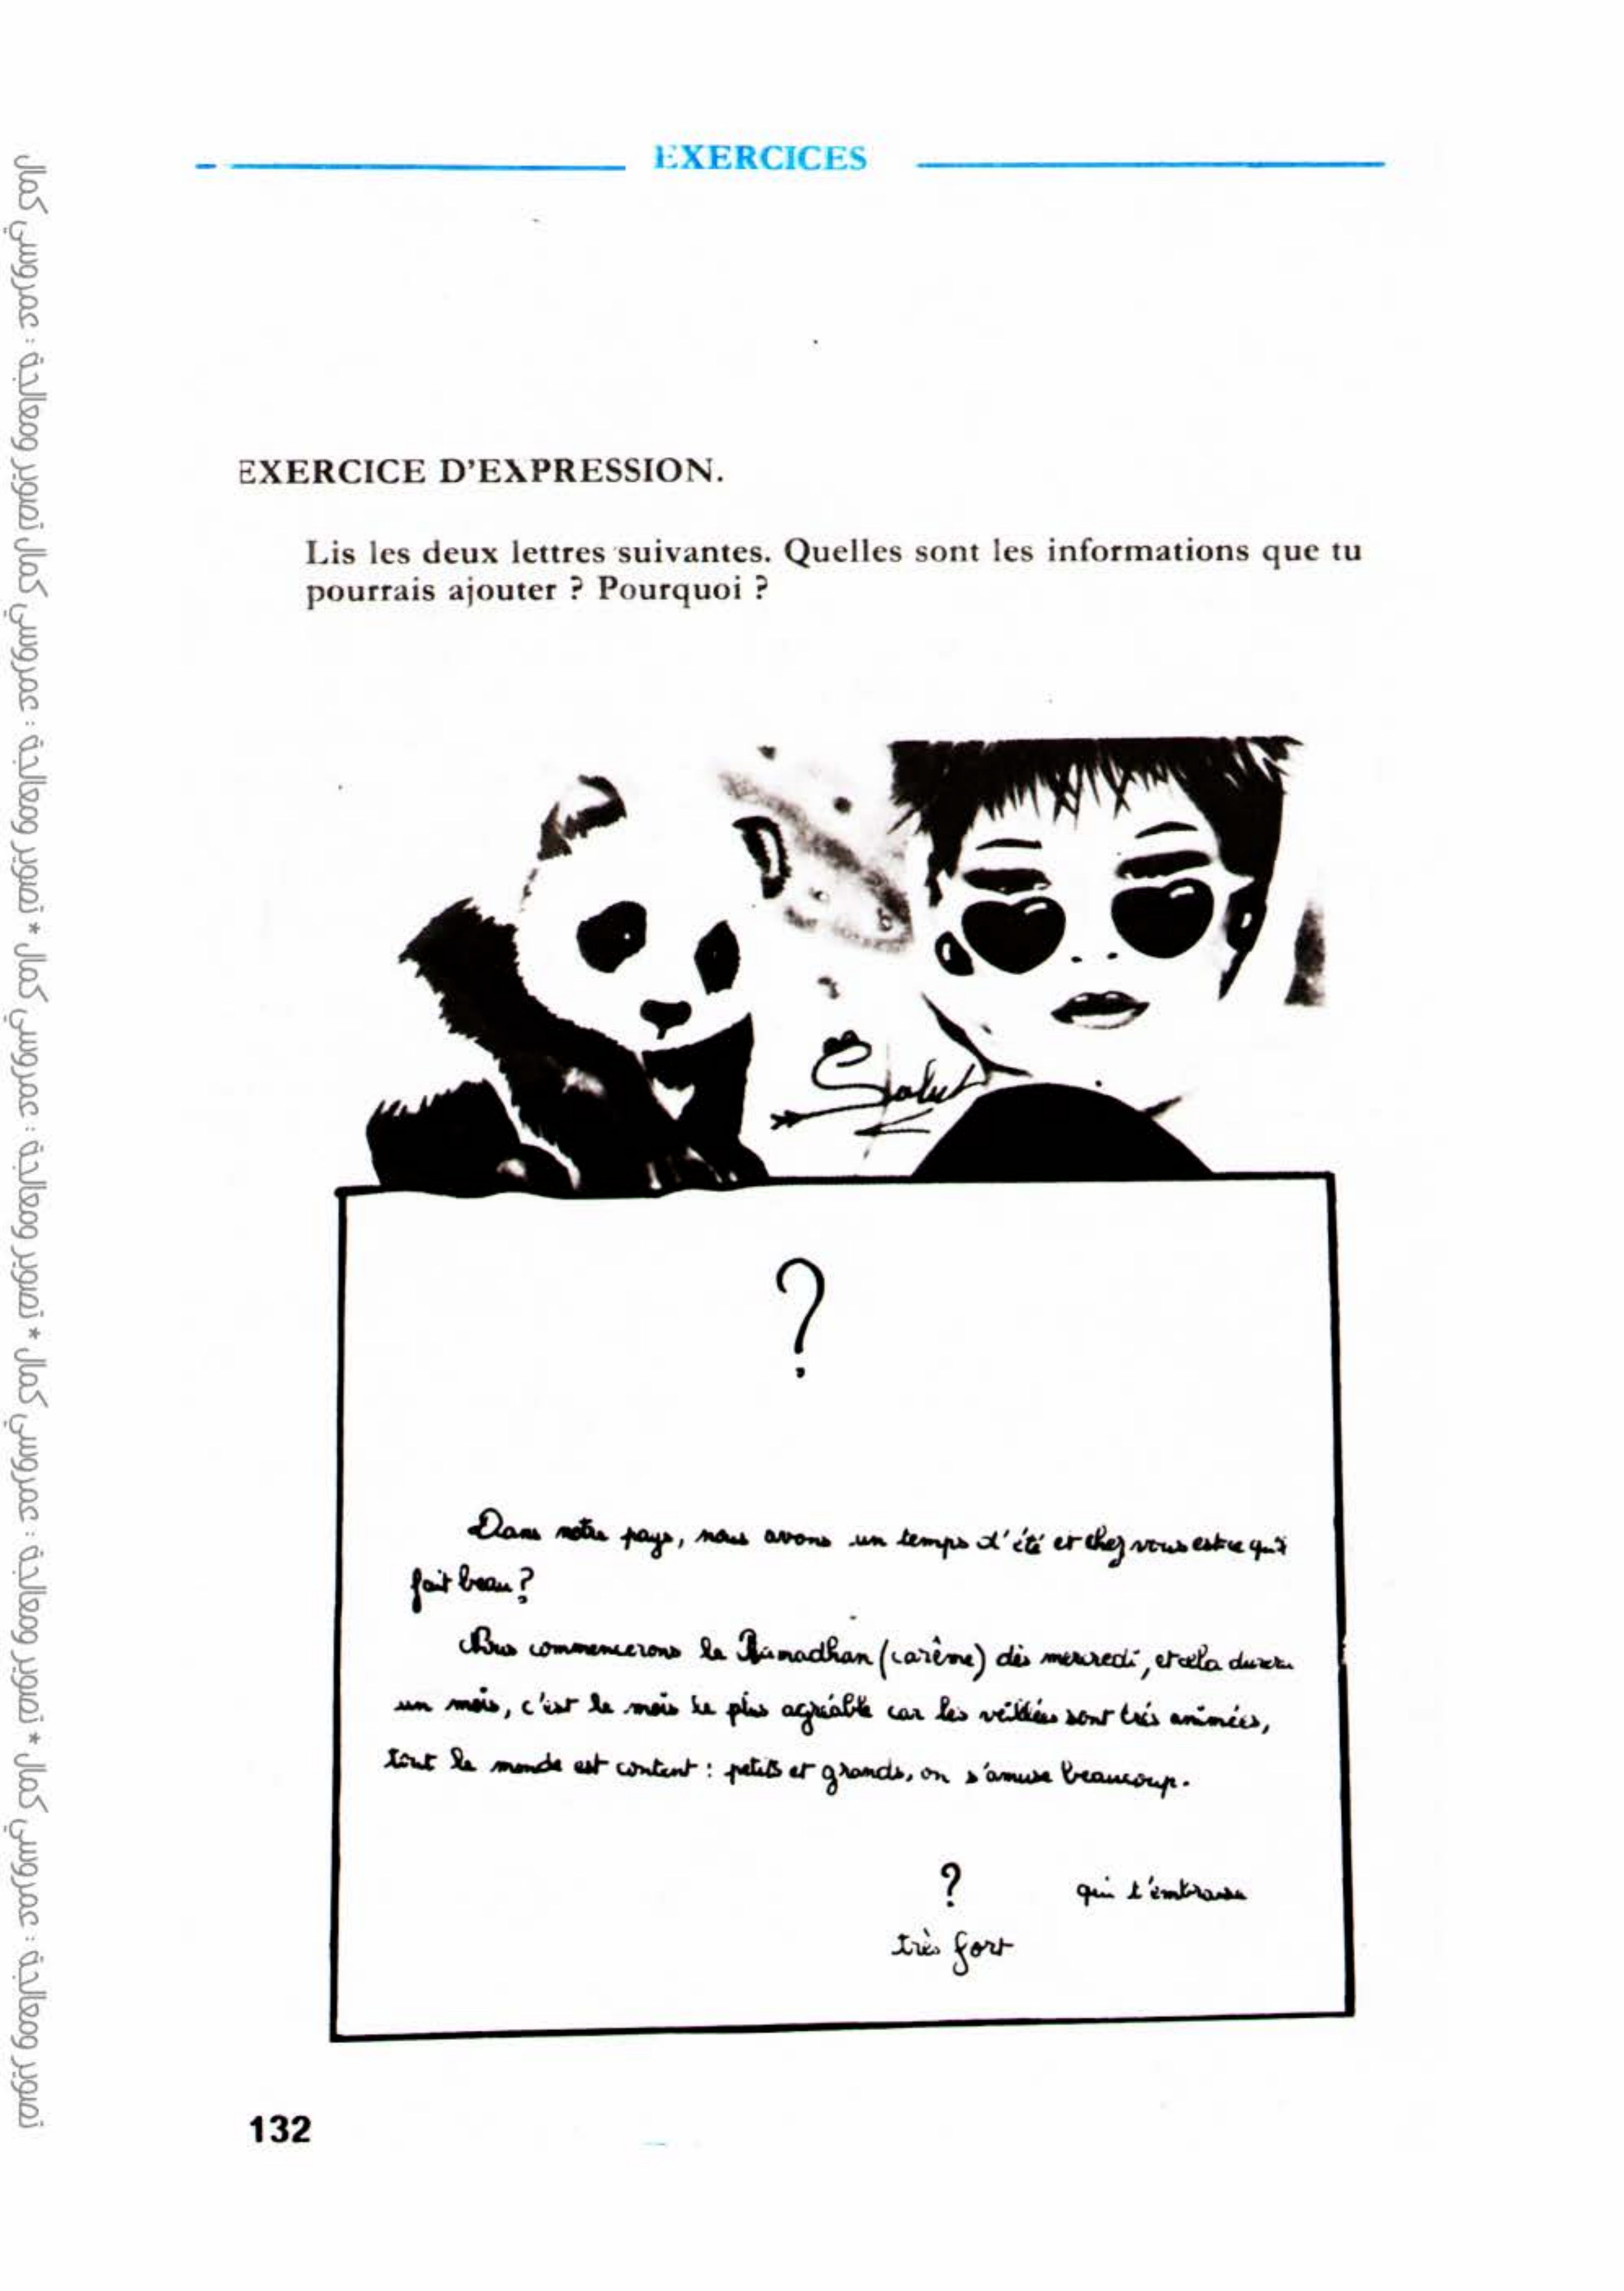 EXERCICES
EXERCICE D'EXPRESSION.
Lis les deux lettres suivantes. Quelles sont les informations que tu
pourrais ajouter ? Pourquoi ?
Salut
?
Dans notre pays, nous avons un temps d'été et chez vous est ce qu'il
fait beau ?
Nous commencerons le Ramadhan (carême) dès mercredi, et cela durera
un mois, c'est le mois le plus agréable car les veillées sont très animées,
tout le monde est content : petits et grands, on s'amuse beaucoup.
? qui t'embrasse
très fort
132
تصوير ومعالجة : عمروسي كمال * تصوير ومعالجة : عمروسي كمال * تصوير ومعالجة : عمروسي كمال * تصوير ومعالجة : عمروسي كمال تصوير ومعالجة : عمروسي كمال